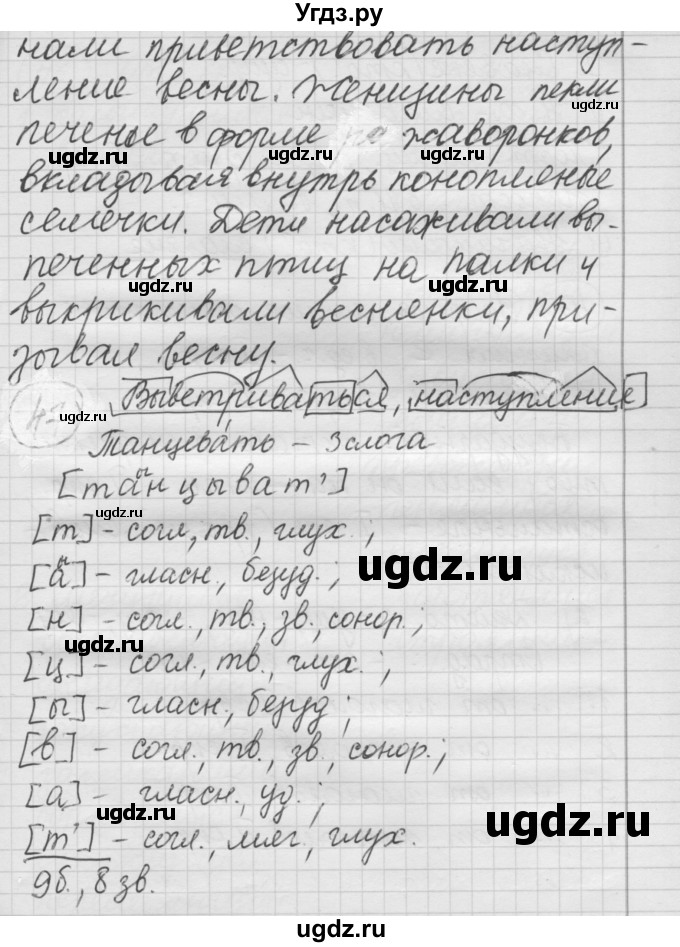 Угдз.ру
нали приветствовать наступ-
ление весны. Женщины пекли
ugdz.ru
печенье в форме жаворонков,
ugdz.ru ugdz.ru
вкладывая внутрь конопляные
ugdz.ru
семечки. Дети насаживали вы-
печенных птиц на палки и
выкрикивали веснянки, при-
зывая весну.
ugdz.ru
Выветриваться, наступление
Танцевать – 3 слога
[танцыват']
[т] – согл., тв., глух.;
ugdz.ru
[а] – гласн., безуд.;
ugdz.ru
[н] – согл., тв., зв., сонор.;
ugdz.ru
[ц] – согл., тв., глух.;
[ы] – гласн., безуд.;
[в] – согл., тв., зв., сонор.;
[а] – гласн., уд.;
ugdz.ru
[т'] – согл., мяг., глух.
ugdz.ru
9 б., 8 зв.
ugdz.ru